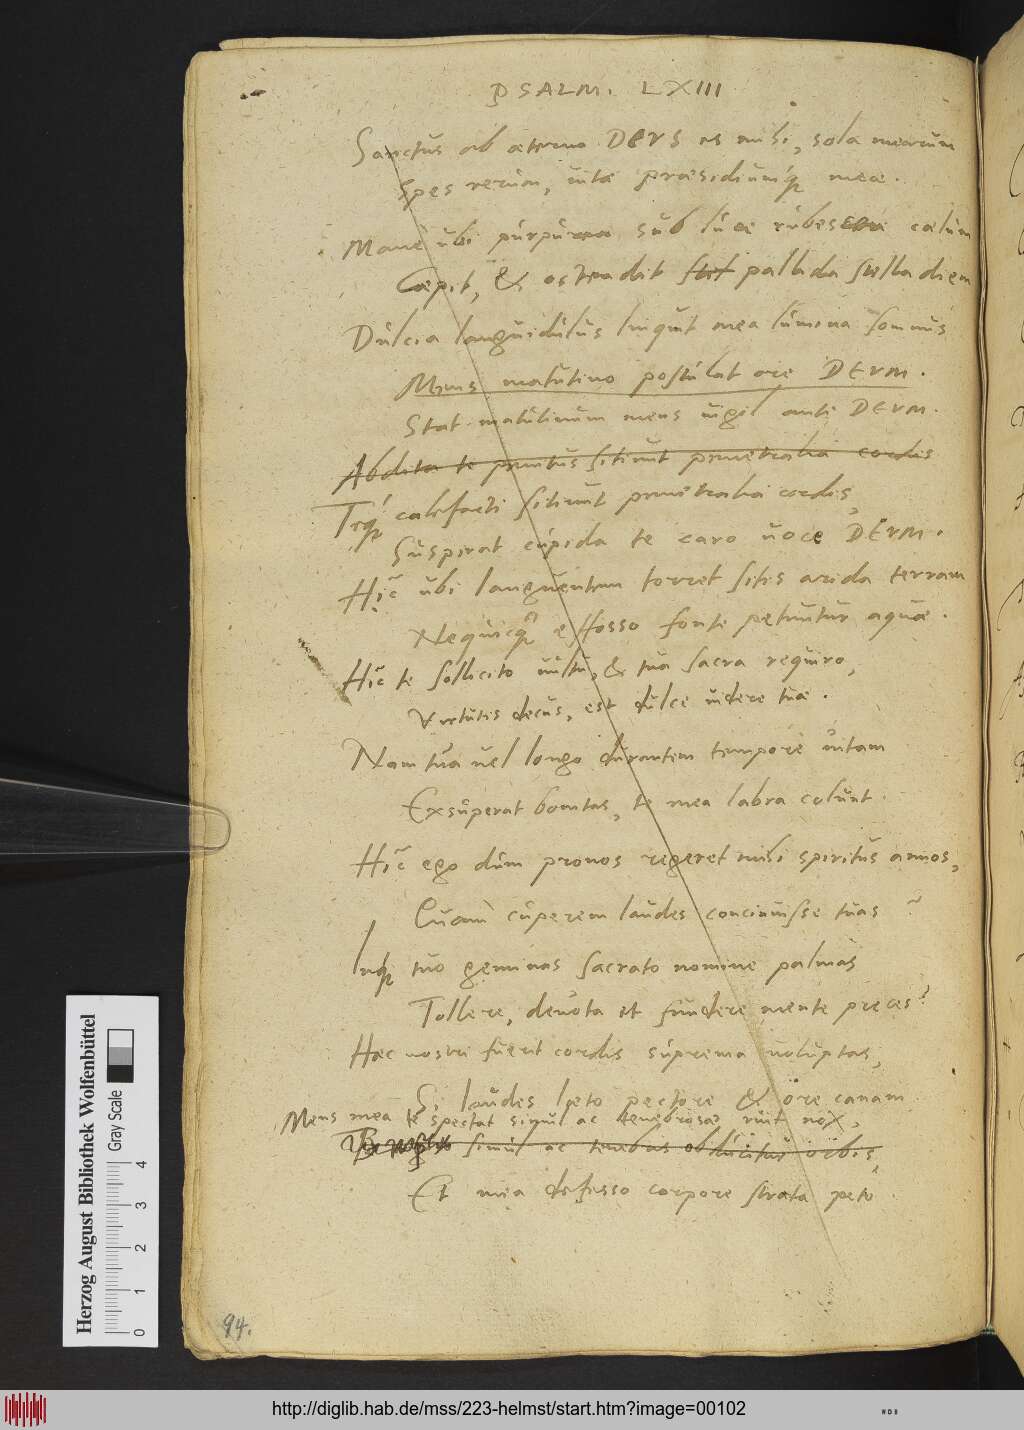 PSALM. LXIII
Sanctus ab æterno DEVS es mihi, sola mearum
Spes rerum, vitæ præsidiumq́ meæ.
Mane ubi purpurea sub luce rubescere cælum
Cæpit, & ostendit pallida stella diem
Dulcia languidulus linquit mea lumina somnus
Mens matutino postulat ore DEVM.
Stat matutinum mens vigil ante DEVM.
Abdita te penitus sitiunt penetralia cordis
Teq́ calefacti sitiunt penetralia cordis,
Suspirat cupida te caro voce DEVM.
Hîc ubi languentem torret sitis arida terram
Nequicq̃ effosso fonte petuntur aquæ.
Hîc te sollicito vultu, & tua sacra requiro,
Virtutis decus, est dulce videre tuæ.
Nam tua vel longo durantem tempore vitam
Exsuperat bonitas, te mea labra colunt.
Hîc ego dum pronos regeret mihi spiritus annos,
Quàm cuperem laudes concinuisse tuas?
Inq́ tuo geminas sacrato nomine palmas
Tollere, devota et fundere mente preces?
Hæc nostri fuerit cordis suprema voluptas,
Si laudes læto pectore & ore canam
Mens mea te spectat simul ac tenebrosa ruit nox,
simul ac tenebris obducitur orbis,
Et mea defesso corpore strata peto
94.
Herzog August Bibliothek Wolfenbüttel
Gray Scale
0 1 2 3 4
http://diglib.hab.de/mss/223-helmst/start.htm?image=00102